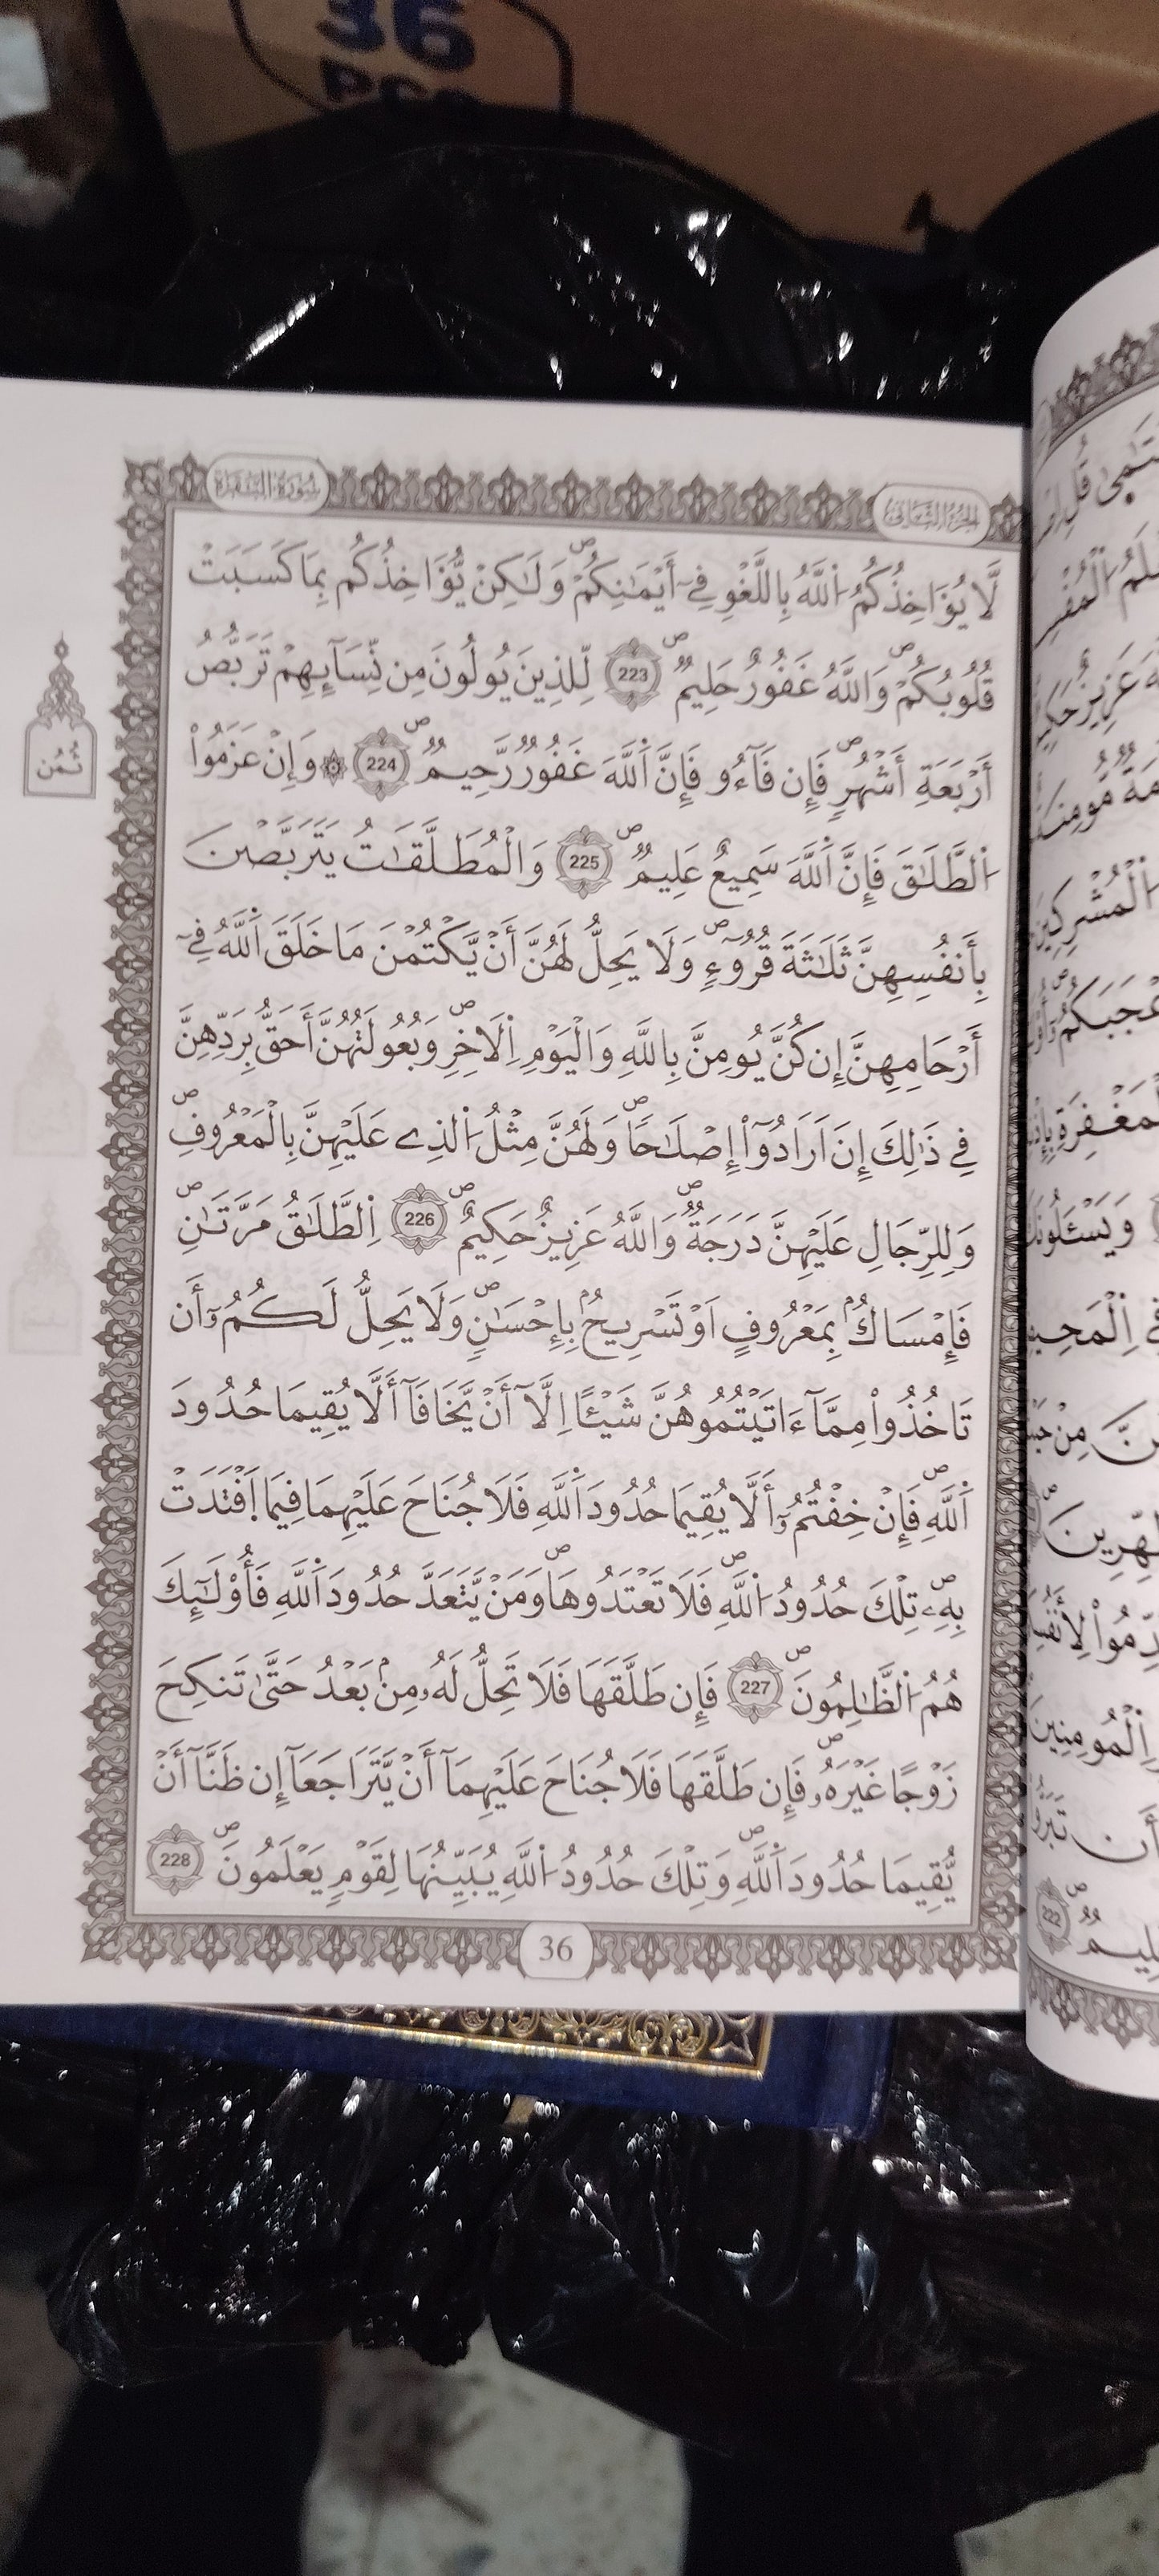 36
PCS
سورة البقرة
الجزء الثاني
لَّا يُؤَاخِذُكُمُ اُ۬للَّهُ بِاللَّغْوِ فِےٓ أَيْمَٰنِكُمْۖ وَلَٰكِنْ يُّؤَاخِذُكُم بِمَا كَسَبَتْ
قُلُوبُكُمْۖ وَاللَّهُ غَفُورٌ حَلِيمٞۖ 223 لِّلذِينَ يُولُونَ مِن نِّسَآئِهِمْ تَرَبُّصُ
أَرْبَعَةِ أَشْهُرٖۖ فَإِن فَآءُو فَإِنَّ اَ۬للَّهَ غَفُورٞ رَّحِيمٞۖ 224 ۞ وَإِنْ عَزَمُواْ
اُ۬لطَّلَٰقَ فَإِنَّ اَ۬للَّهَ سَمِيعٌ عَلِيمٞۖ 225 وَالْمُطَلَّقَٰتُ يَتَرَبَّصْنَ
بِأَنفُسِهِنَّ ثَلَٰثَةَ قُرُوٓءٖۖ وَلَا يَحِلُّ لَهُنَّ أَنْ يَّكْتُمْنَ مَا خَلَقَ اَ۬للَّهُ فِےٓ
أَرْحَامِهِنَّ إِن كُنَّ يُومِنَّ بِاللَّهِ وَالْيَوْمِ اِ۬لَاخِرِۖ وَبُعُولَتُهُنَّ أَحَقُّ بِرَدِّهِنَّ
فِے ذَٰلِكَ إِنَ اَرَادُوٓاْ إِصْلَٰحاٗۖ وَلَهُنَّ مِثْلُ اُ۬لذِے عَلَيْهِنَّ بِالْمَعْرُوفِۖ
وَلِلرِّجَالِ عَلَيْهِنَّ دَرَجَةٞۖ وَاللَّهُ عَزِيزٌ حَكِيمٌۖ 226 اِ۬لطَّلَٰقُ مَرَّتَٰنِۖ
فَإِمْسَاكُۢ بِمَعْرُوفٍ اَوْ تَسْرِيحُۢ بِإِحْسَٰنٖۖ وَلَا يَحِلُّ لَكُمُۥٓ أَن
تَاخُذُواْ مِمَّآ ءَاتَيْتُمُوهُنَّ شَيْـًٔا اِلَّآ أَنْ يَّخَافَآ أَلَّا يُقِيمَا حُدُودَ
اَ۬للَّهِۖ فَإِنْ خِفْتُمُۥٓ أَلَّا يُقِيمَا حُدُودَ اَ۬للَّهِ فَلَا جُنَاحَ عَلَيْهِمَا فِيمَا اَ۪فْتَدَتْ
بِهِۦۖ تِلْكَ حُدُودُ اُ۬للَّهِۖ فَلَا تَعْتَدُوهَاۖ وَمَنْ يَّتَعَدَّ حُدُودَ اَ۬للَّهِ فَأُوْلَٰٓئِكَ
هُمُ اُ۬لظَّٰلِمُونَۖ 227 فَإِن طَلَّقَهَا فَلَا تَحِلُّ لَهُۥ مِنۢ بَعْدُ حَتَّىٰ تَنكِحَ
زَوْجاً غَيْرَهُۥۖ فَإِن طَلَّقَهَا فَلَا جُنَاحَ عَلَيْهِمَآ أَنْ يَّتَرَاجَعَآ إِن ظَنَّآ أَنْ
يُّقِيمَا حُدُودَ اَ۬للَّهِۖ وَتِلْكَ حُدُودُ اُ۬للَّهِ يُبَيِّنُهَا لِقَوْمٖ يَعْلَمُونَۖ 228
ثُمُن
36
222